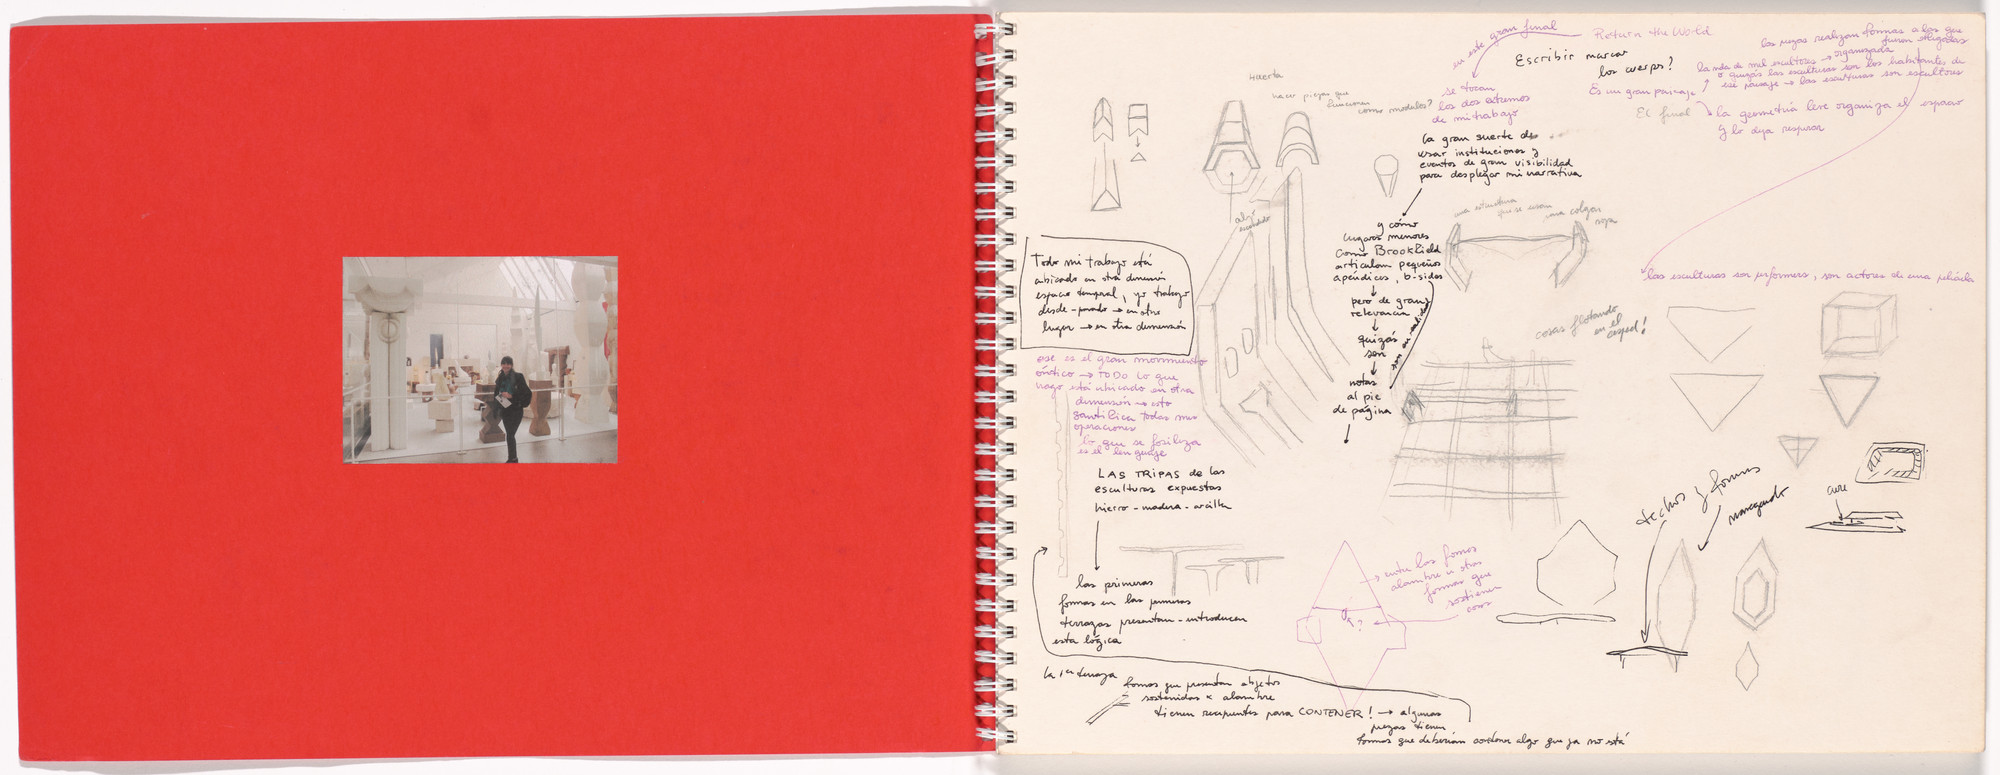 en este gran final
Return the World
se tocan
los dos extremos
de mi trabajo
Escribir marcar
los cuerpos?
las piezas realizan formas a las que
fueron obligadas
la vida de mil escultores → organizada
o quizás las esculturas son los habitantes de
ese paisaje → las esculturas son escultores
Es un gran paisaje
El final
la geometría leve organiza el espacio
y lo deja respirar
Huerta
hacer piezas que
funcionen
como modulos?
La gran suerte de
usar instituciones y
eventos de gran visibilidad
para desplegar mi narrativa
y cómo
lugares menores
como Brookfield
articulan pequeños
apéndices, b-sides
pero de gran
relevancia
quizás
son
notas
al pie
de página
son en realidad
una estructura
que se usan
una colgar
ropa
algo
Todo mi trabajo está
ubicado en otra dimensión
espacio temporal, yo trabajo
desde - parado → en otro
lugar → en otra dimensión
ese es el gran movimiento
óntico → TODO lo que
hago está ubicado en otra
dimensión → esto
santifica todas mis
operaciones
lo que se fosiliza
es el lenguaje
LAS TRIPAS de las
esculturas expuestas
hierro - madera - arcilla
las primeras
formas en las primeras
terrazas presentan - introducen
esta lógica
las esculturas son performers, son actores de una película
cosas flotando
en el
césped!
techos y formas
navegando
entre las formas
alambre u otras
formas que
sostienen
cosas
la 1ra terraza
formas que presentan objetos
sostenidos x alambre
tienen recipientes para CONTENER! → algunas
piezas tienen
formas que deberían contener algo que ya no está